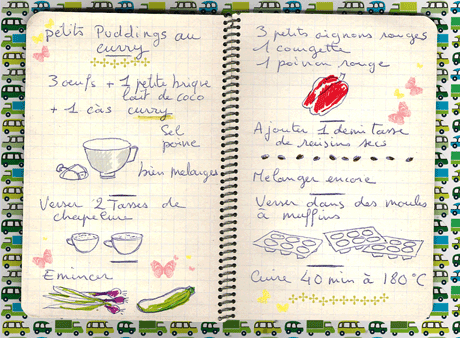 petits Puddings au
curry
3 oeufs + 1 petite brique
lait de coco
+ 1 càs curry
Sel
poivre
bien melanger
Verser 2 Tasses de
chapelure
Emincer
3 petits oignons rouges
1 courgette
1 poivron rouge
Ajouter 1 demi tasse
de raisins secs
Melanger encore
Verser dans des moules
à muffins
Cuire 40 min à 180°C